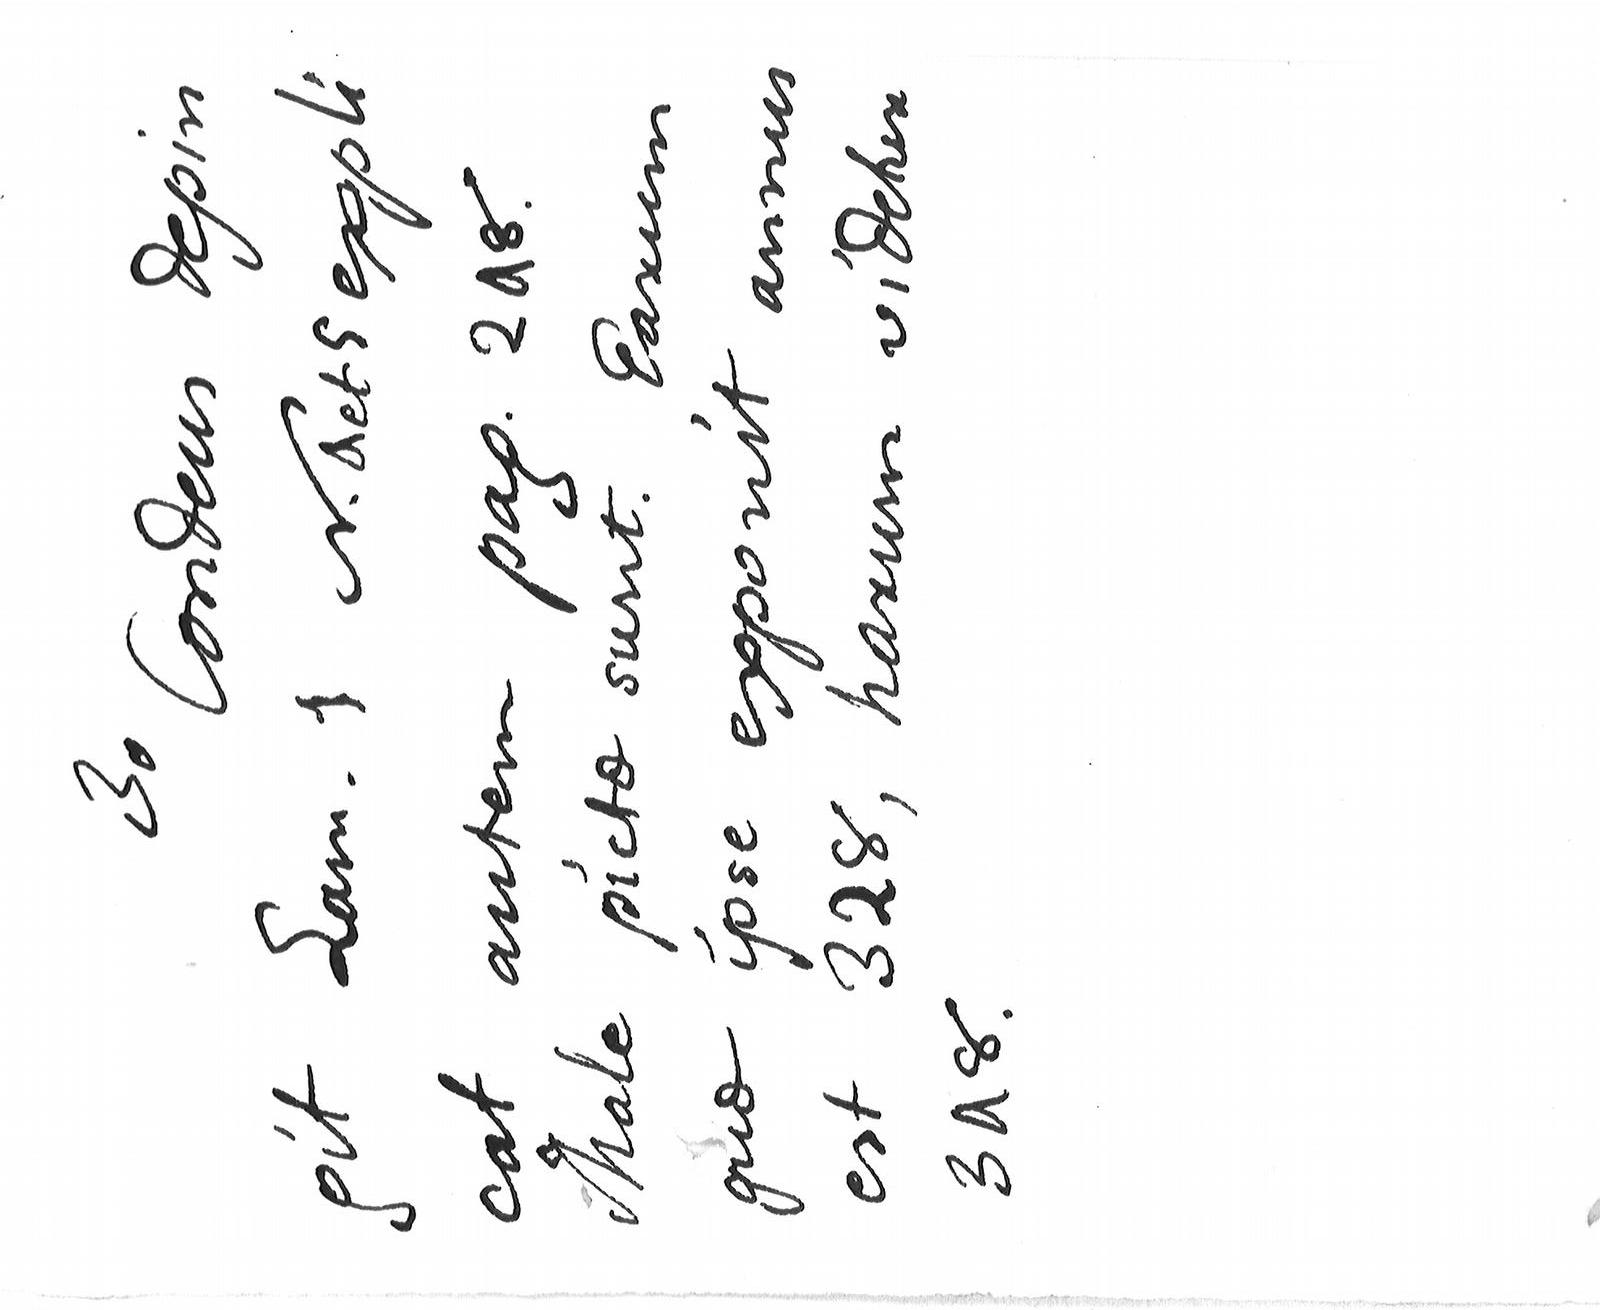 3o Condeus depin
git Lam. 1 v. 1 et 5 expli
cat autem pag. 218.
Male picto sunt. Earum
quo ipse exponit annus
est 328, harum videtur
318.